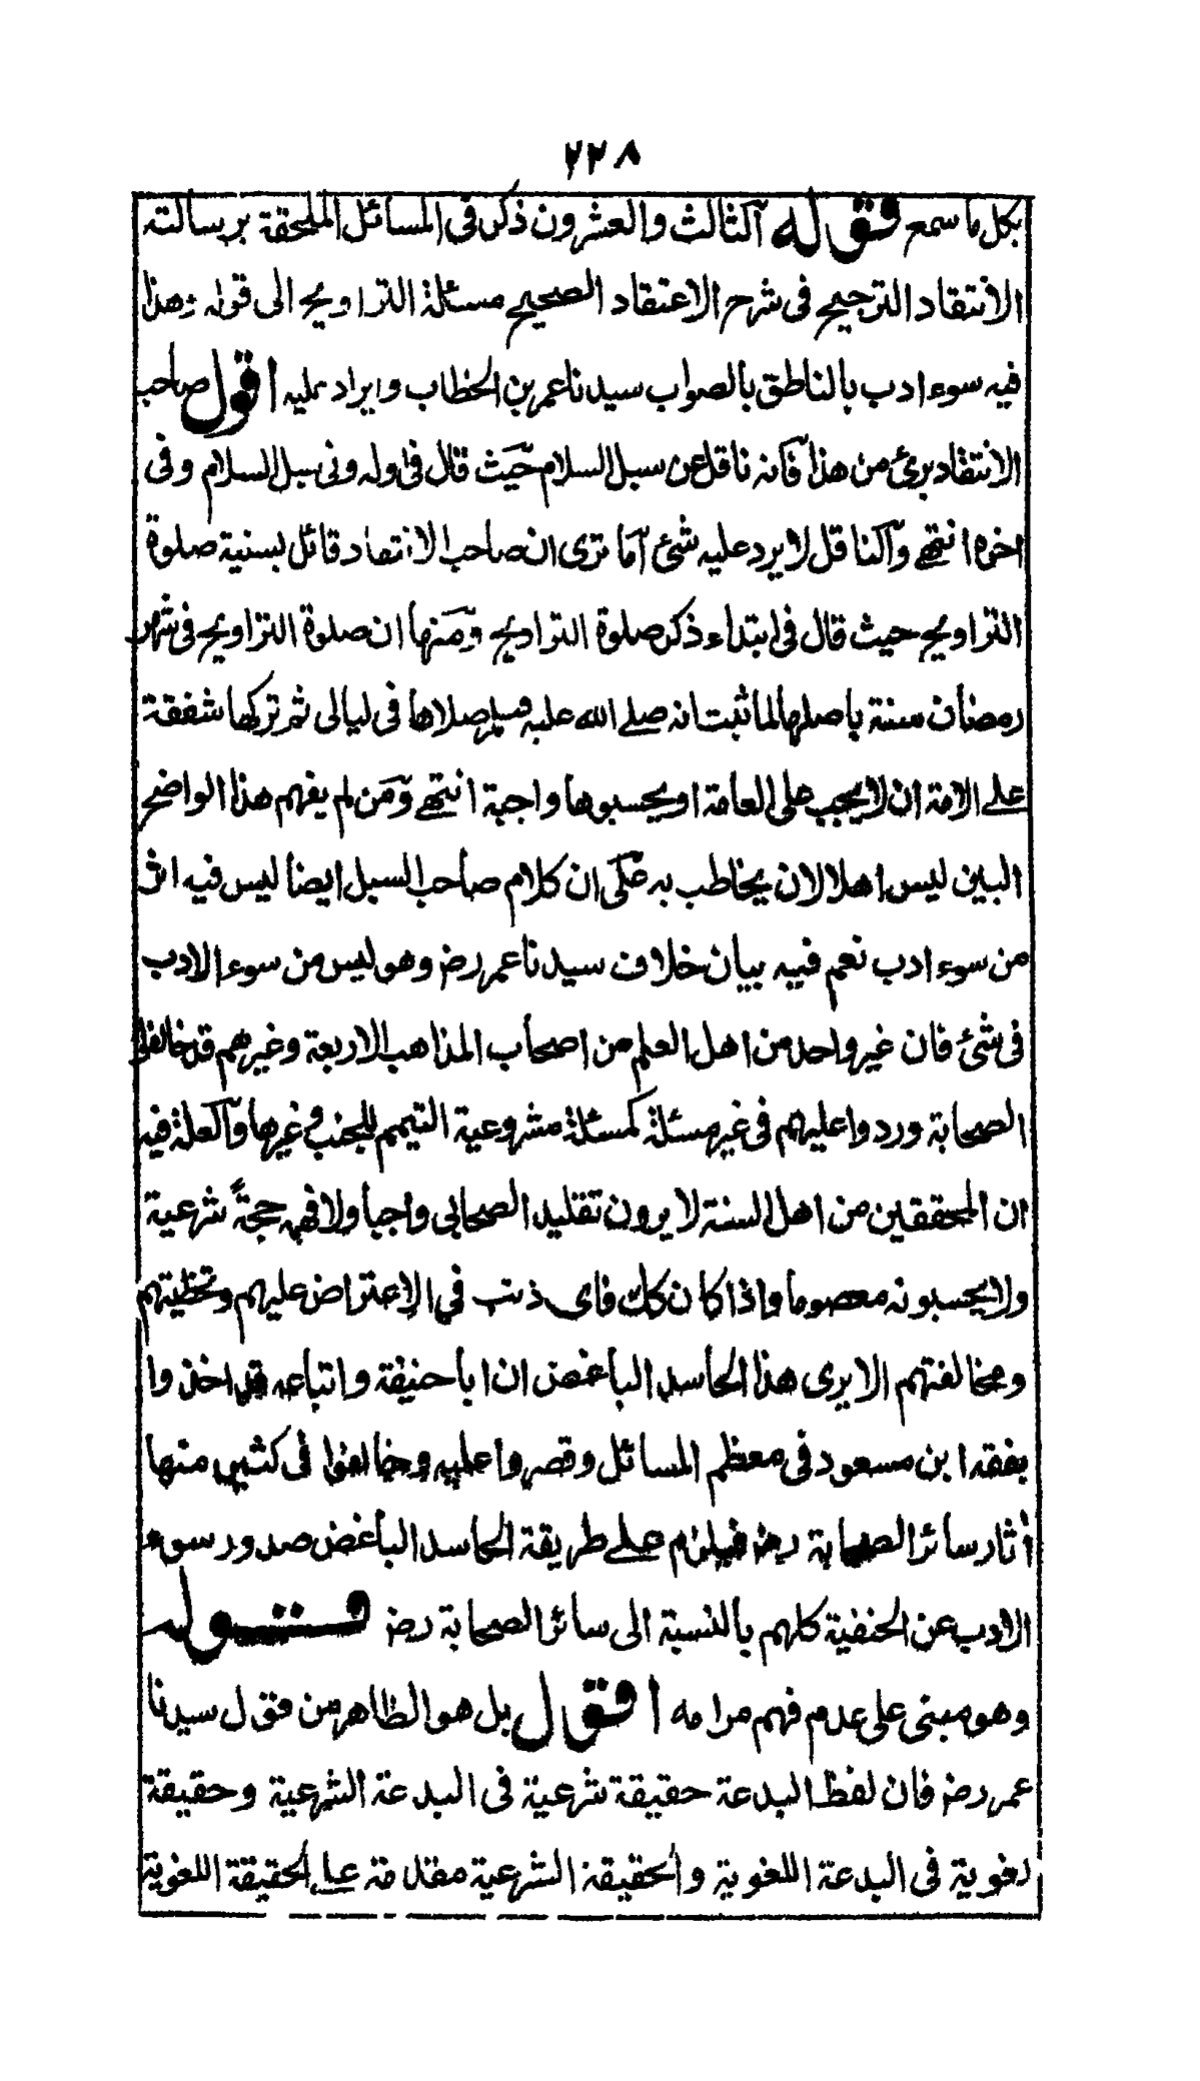 ٢٢٨
بكل ما سمع قوله الثالث والعشرون ذكر فى المسائل الملحقة برسالته
الانتقاد الترجيح فى شرح الاعتقاد الصحيح مسئلة التراويح الى قوله وهذا
فيه سوء ادب بالناطق بالصواب سيدنا عمر بن الخطاب وايراد عليه اقول صاحب
الانتقاد برئ من هذا فانه ناقل عن سبل السلام حيث قال فى اوله وفى سبل السلام وفى
اخره انتهى والناقل لا يرد عليه شئ اما ترى ان صاحب الانتقاد قائل بسنية صلوة
التراويح حيث قال فى ابتداء ذكر صلوة التراويح ومنها ان صلوة التراويح فى شهر
رمضان سنة باصلها لما ثبت انه صلے الله عليه وسلم صلاها فى ليالى ثم تركها شفقة
علے الامة ان لا يجب على العامة او يحسبوها واجبة انتهى ومن لم يفهم هذا الواضح
البين ليس اهلا لان يخاطب به على ان كلام صاحب السبل ايضا ليس فيه اثر
من سوء ادب نعم فيه بيان خلاف سيدنا عمر رضـ وهو ليس من سوء الادب
فى شئ فان غير واحد من اهل العلم من اصحاب المذاهب الاربعة وغيرهم قد خالفوا
الصحابة وردوا عليهم فى غير مسئلة كمسئلة مشروعية التيمم للجنب وغيرها والعلة فيه
ان المحققين من اهل السنة لا يرون تقليد الصحابى واجبا ولا فهمه حجةً شرعية
ولا يحسبونه معصوما واذا كان كك فاى ذنب فى الاعتراض عليهم وتخطيتهم
ومخالفتهم الا يرى هذا الحاسد الباغض ان ابا حنيفة واتباعه قد اخذوا
بفقه ابن مسعود فى معظم المسائل وقصروا عليه وخالفوا فى كثير منها
أثار سائر الصحابة رضـ فيلزم علے طريقة الحاسد الباغض صدور سوء
الادب عن الحنفية كلهم بالنسبة الى سائر الصحابة رضـ قوله
وهو مبنى على عدم فهم مرامه اقول بل هو الظاهر من قول سيدنا
عمر رضـ فان لفظ البدعة حقيقة شرعية فى البدعة الشرعية وحقيقة
لغوية فى البدعة اللغوية والحقيقة الشرعية مقدمة علے الحقيقة اللغوية